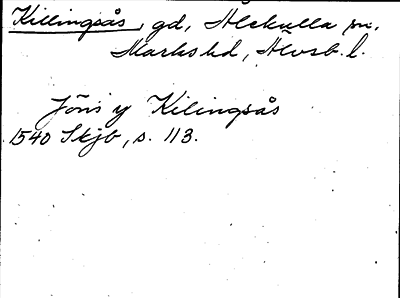 Killingsås, gd, Älekulla sn.
Marks hd, Älvsb. l.
Jöns y Kilingsås
1540 Skjb, s. 113.